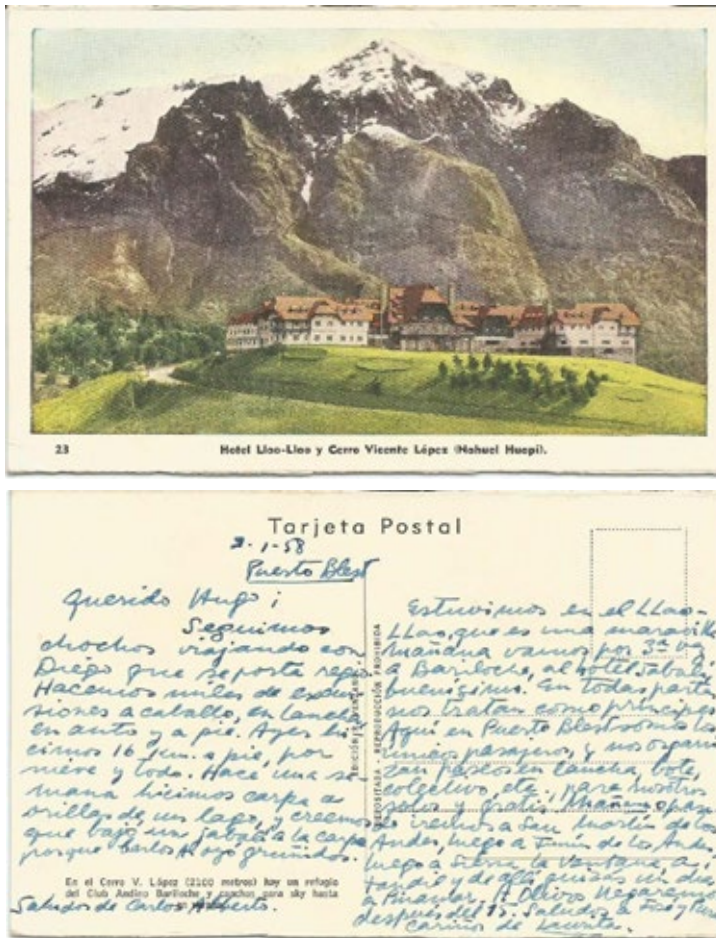 23 Hotel Llao-Llao y Cerro Vicente López (Nahuel Huapí).
Tarjeta Postal
2-1-58
Puerto Blest
Querido Hugo:
Seguimos
chochos viajando con
Diego que se porta
Hacemos miles de
siones a caballo, en lancha
en auto y a pie. Ayer hi
cimos 16 km. a pie, por
nieve y todo. Hace una se
mana hicimos carpa a
orillas de un lago, y creemos
que bajó un jabalí a la carpa
porque Carlos A oyó gruñidos.
En el Cerro V. López (2100 metros) hay un refugio
del Club Andino Bariloche y canchas para sky hasta
Saludos de Carlos Alberto.
DEPOSITADA - REPRODUCCIÓN PROHIBIDA
Estuvimos en el LLao-
LLao, que es una maravilla
mañana vamos por 3ª vez
a Bariloche, al hotel
buenísimo. En todas partes
nos tratan como príncipes
Aquí en Puerto Blest somos los
únicos pasajeros, y nos organi
zan paseos en lancha, bote,
colectivo, etc, para nosotros
solos y gratis. Mañana
iremos a San Martín de los
Andes, luego a Junín de los Andes
luego a Sierra la Ventana a
Tandil y de allí quizás un día
a Pinamar. A Olivos llegaremos
después del 15. Saludos a José y
cariños de Laurita.